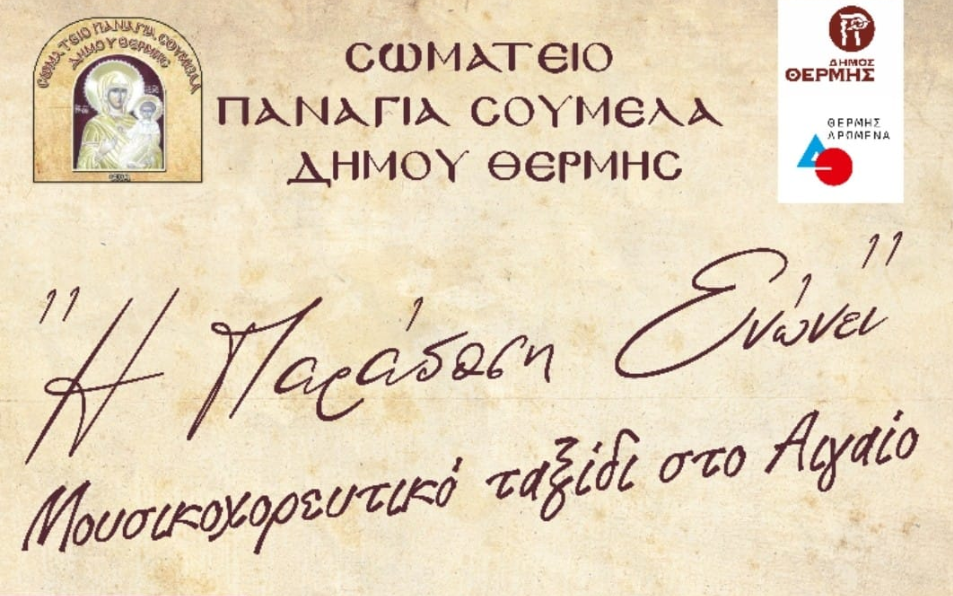 ΣΩΜΑΤΕΙΟ ΠΑΝΑΓΙΑ ΣΟΥΜΕΛΑ
ΔΗΜΟΥ ΘΕΡΜΗΣ
ΣΩΜΑΤΕΙΟ
ΠΑΝΑΓΙΑ ΣΟΥΜΕΛΑ
ΔΗΜΟΥ ΘΕΡΜΗΣ
ΔΗΜΟΣ
ΘΕΡΜΗΣ
ΘΕΡΜΗΣ
ΔΡΩΜΕΝΑ
"Η Παράδοση Ενώνει"
Μουσικοχορευτικό ταξίδι στο Αιγαίο